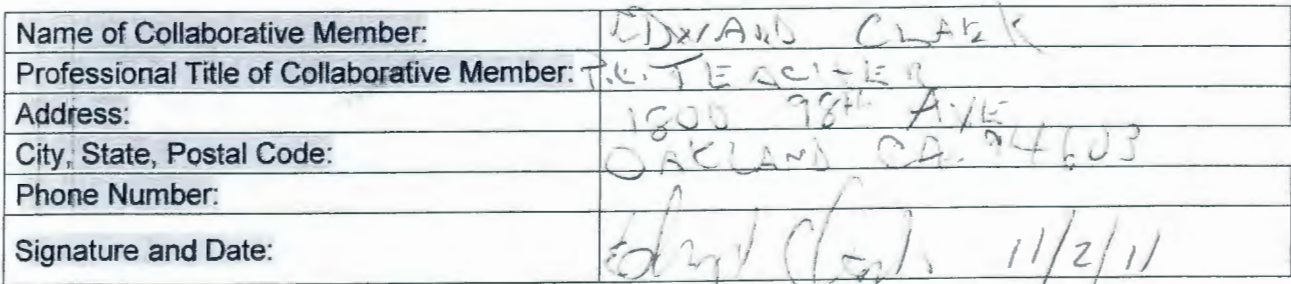 Name of Collaborative Member: EDWARD CLARK
Professional Title of Collaborative Member: P.E. TEACHER
Address: 1800 98th AVE
City, State, Postal Code: OAKLAND CA. 94603
Phone Number:
Signature and Date: Edward Clark 11/2/11